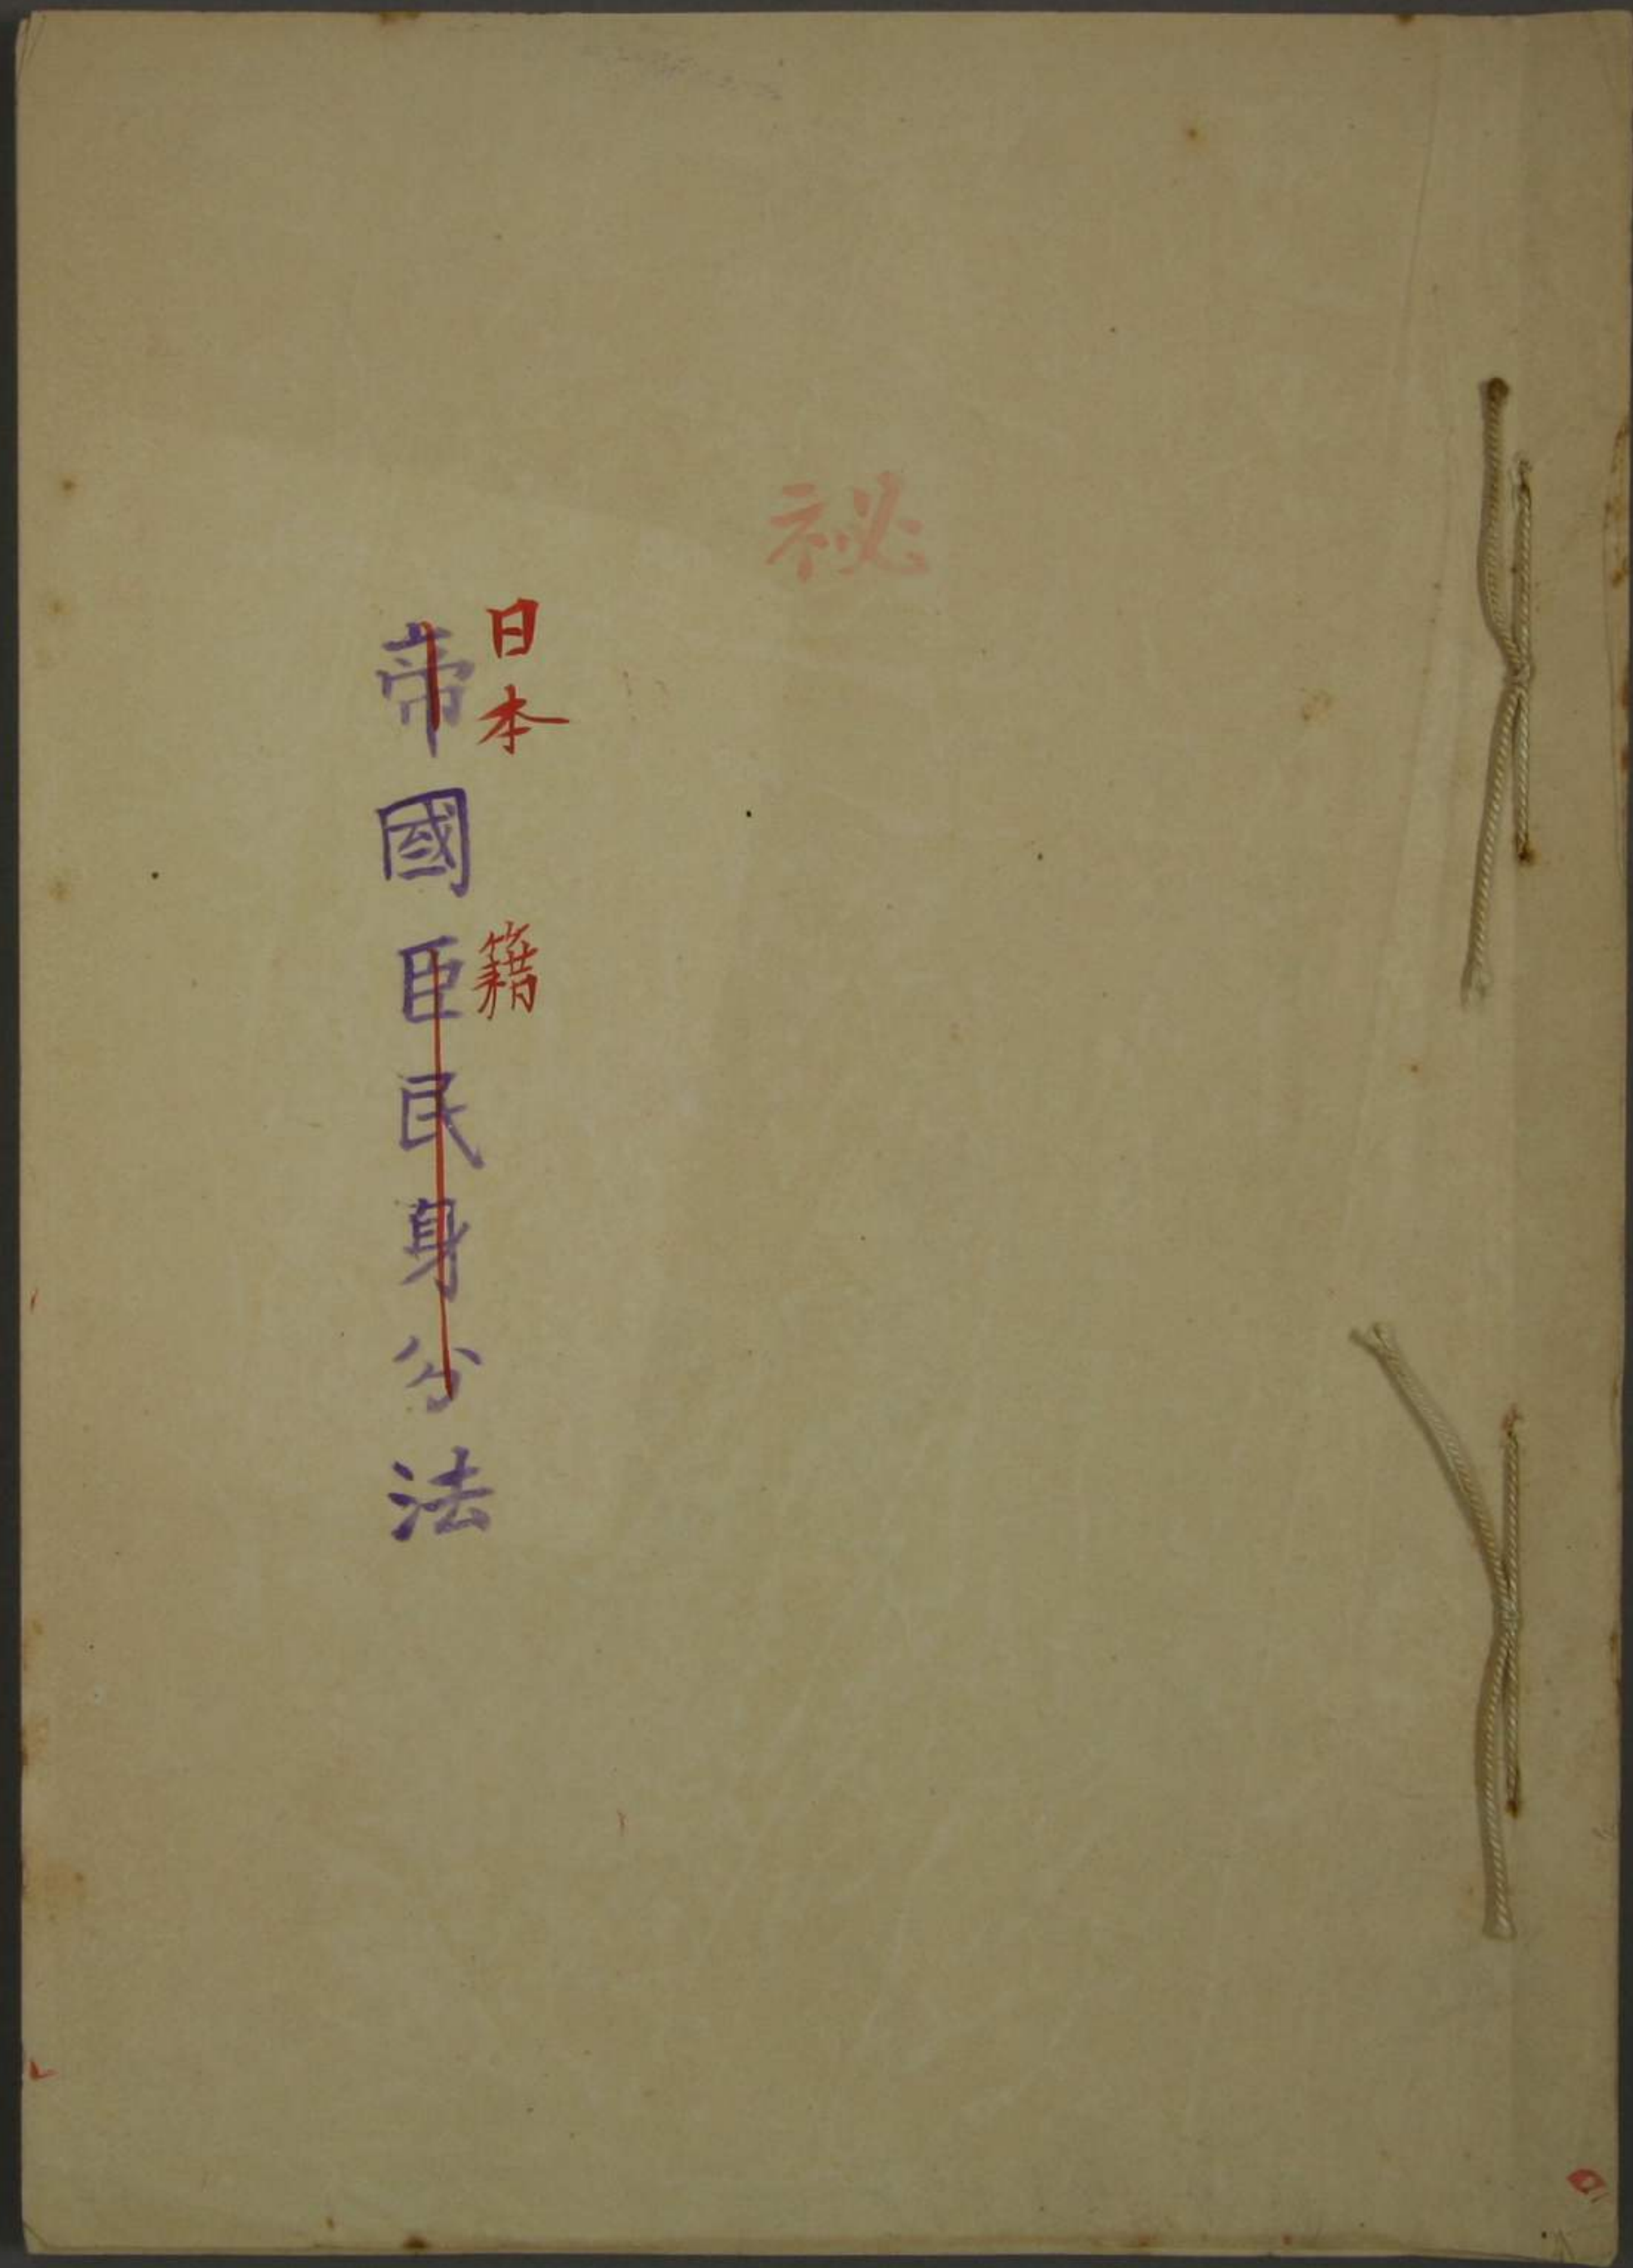 祕
日本
籍
帝國臣民身分法